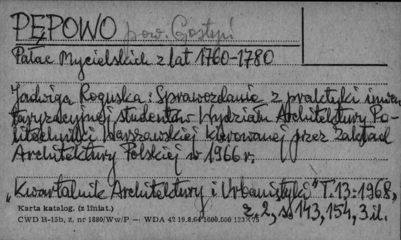 PĘPOWO pow. Gostyń
Pałac Mycielskich z lat 1760-1780
Jadwiga Roguska: Sprawozdanie z praktyki inwen
taryzacyjnej studentów Wydziału Architektury Po-
litechniki Warszawskiej kierowanej przez Zakład
Architektury Polskiej w 1966 r.
"Kwartalnik Architektury i Urbanistyki" T.13:1968,
z. 2, s. 143, 154, 3 il.
Karta katalog. (z liniat.)
CWD H-15b, z. nr 1880/Ww/P — WDA 42 19.8.64 1000.000